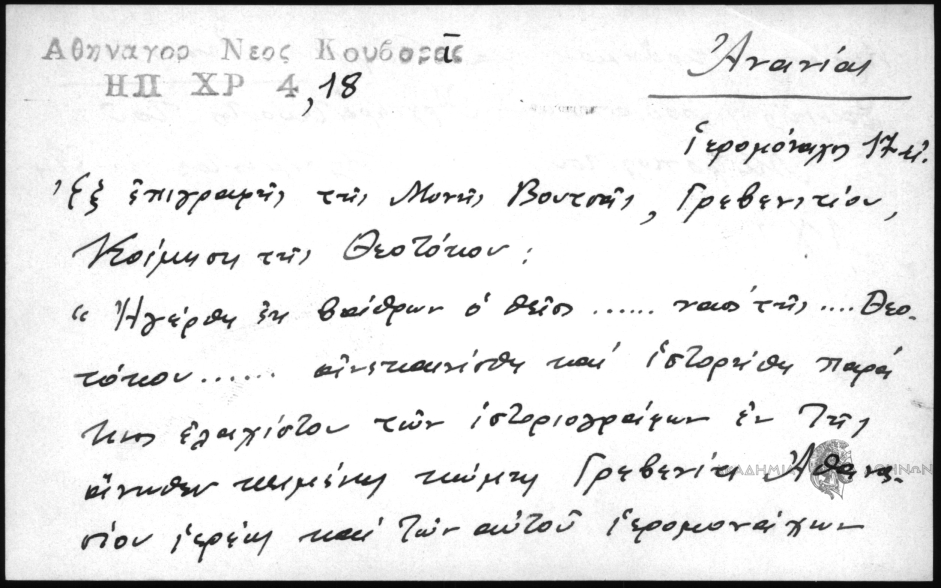 Αθηναγορ Νεος Κουβαρᾶς
ΗΠ ΧΡ 4, 18
Ἀνανίας
ἱερομόναχος 17 αἰ.
Ἐξ ἐπιγραφῆς τῆς Μονῆς Βουτσᾶς, Γρεβενιτίου,
Κοίμηση τῆς Θεοτόκου:
"Ἠγέρθη ἐκ βάθρων ὁ θεῖος ...... ναός τῆς .... Θεο-
τόκου ...... ἀνεκαινίσθη καί ἱστορήθη παρά
ἐλαχίστου τῶν ἱστοριογράφων ἐν τῆς
ἄνωθεν κειμένης κώμης Γρεβενίτι Ἀθανα-
σίου ἱερέως καί τῶν αὐτοῦ ἱερομονάχων
ΑΚΑΔΗΜΙΑ ΑΘΗΝΩΝ